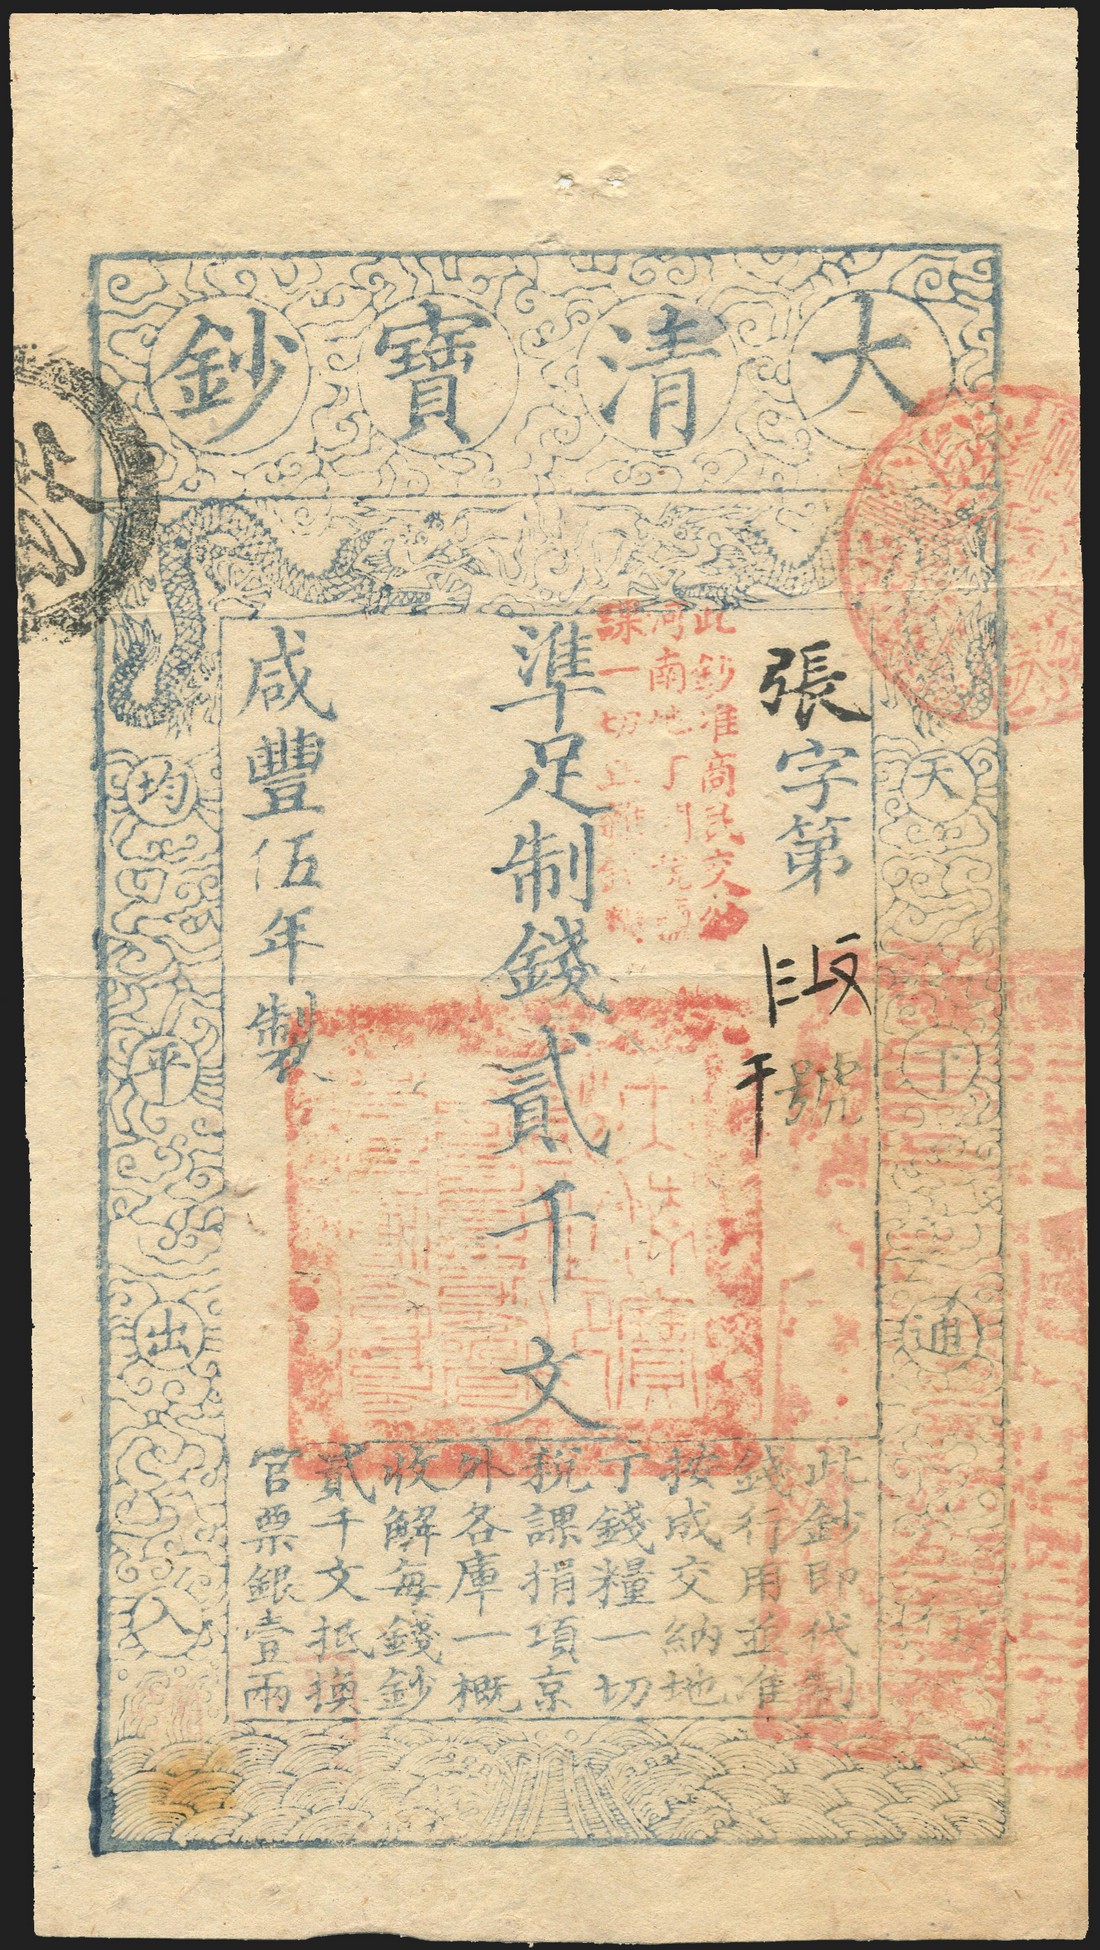 大清寶鈔
天下通行
均平出入
張字第
號
準足制錢貳千文
咸豐伍年製
此鈔准商民交納
河南地丁關稅鹽
課一切
此鈔即代制
錢行用並准
按成交納地
丁錢糧一切
稅課捐項京
外各庫一概
收解每錢鈔
貳千文抵換
官票銀壹兩